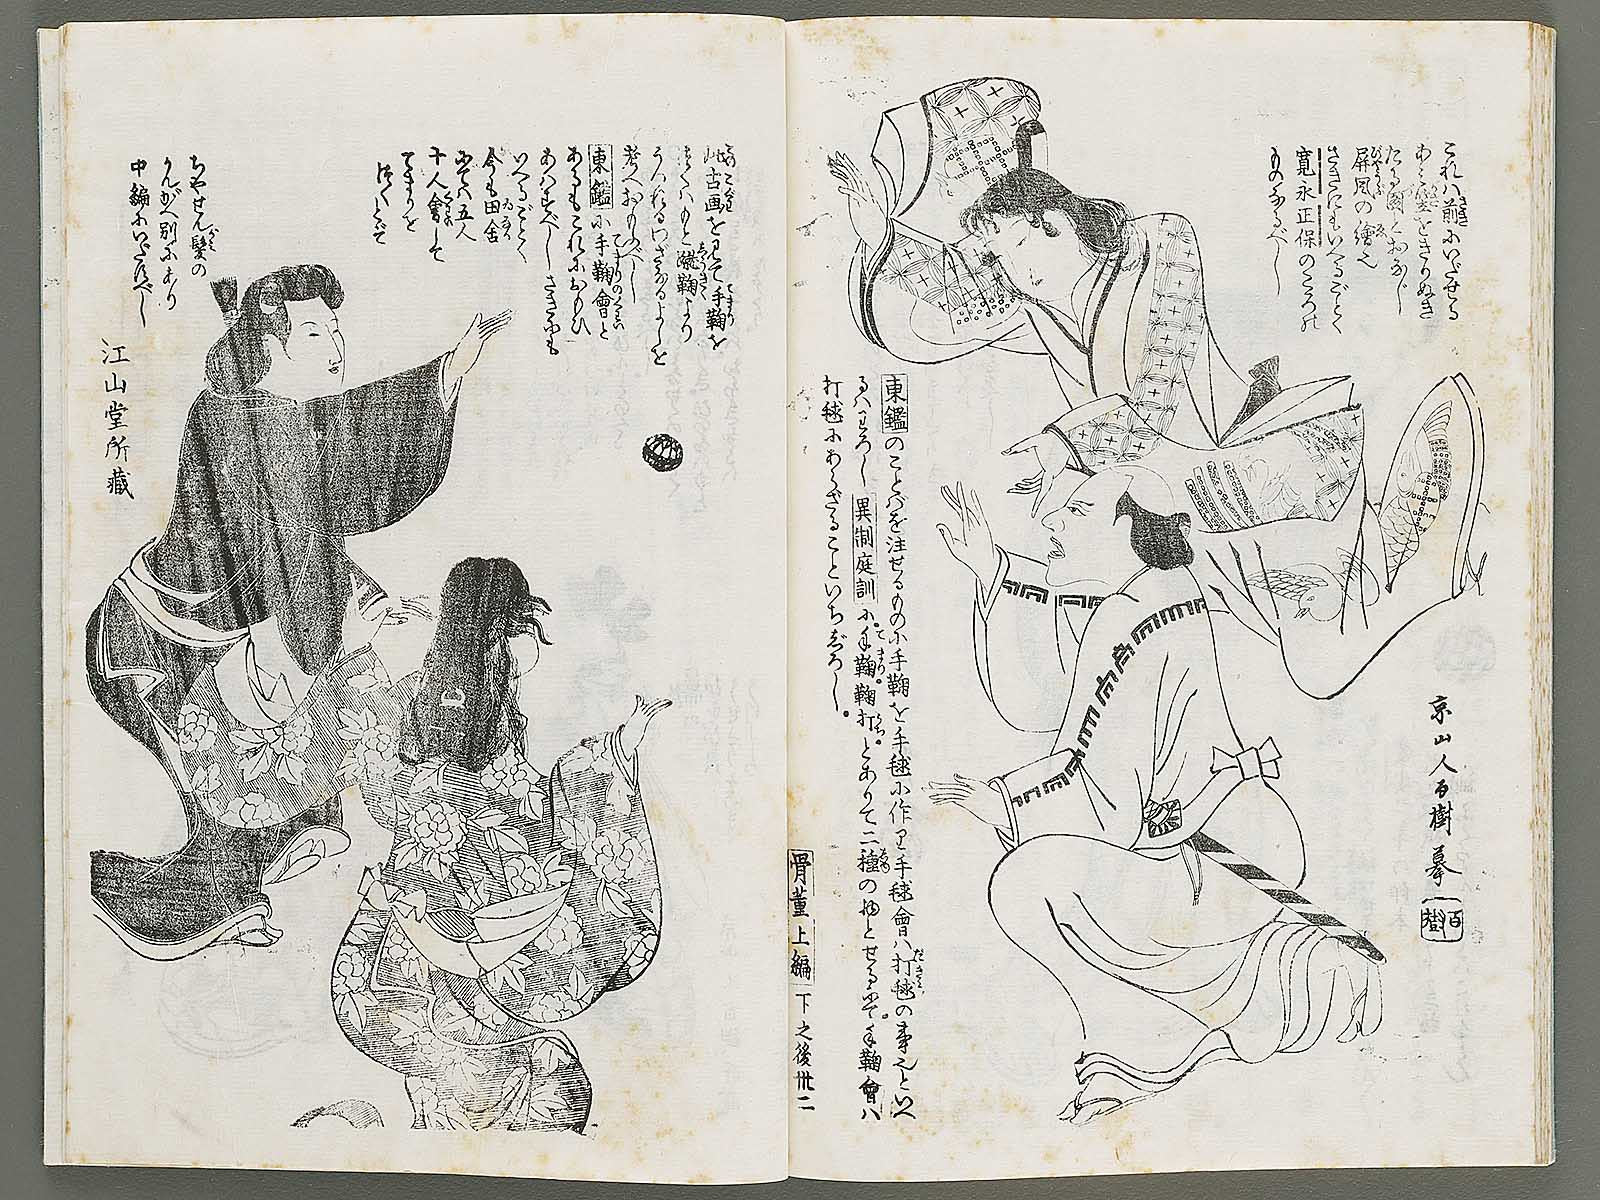 これハ前にいだせる
あふ空をきりぬき
たる図とおなじ
屏風の繪也
さきにもいへるごとく
寛永正保のころの
ものなるべし
京山人百樹摹
百樹
東鑑のことバを注せるものに手鞠を手毬に作り手毬會ハ打毬の事也といへ
るハわろし異制庭訓に手鞠鞠打とありて二種の物とせるにて手鞠會ハ
打毬にあらざることいちじろし
骨董上編 下之後卅二
此古画を見て手鞠を
またハもと蹴鞠より
うつれるわざなるよしを
考へおもふべし
東鑑に手鞠會と
あるもこれにおもひ
あハすべしさきにも
いへるごとく
今も田舎
にてハ五人
十人會して
てまりを
つくとぞ
ちやせん髪の
かんがへ別にあり
中編にいだすべし
江山堂所藏